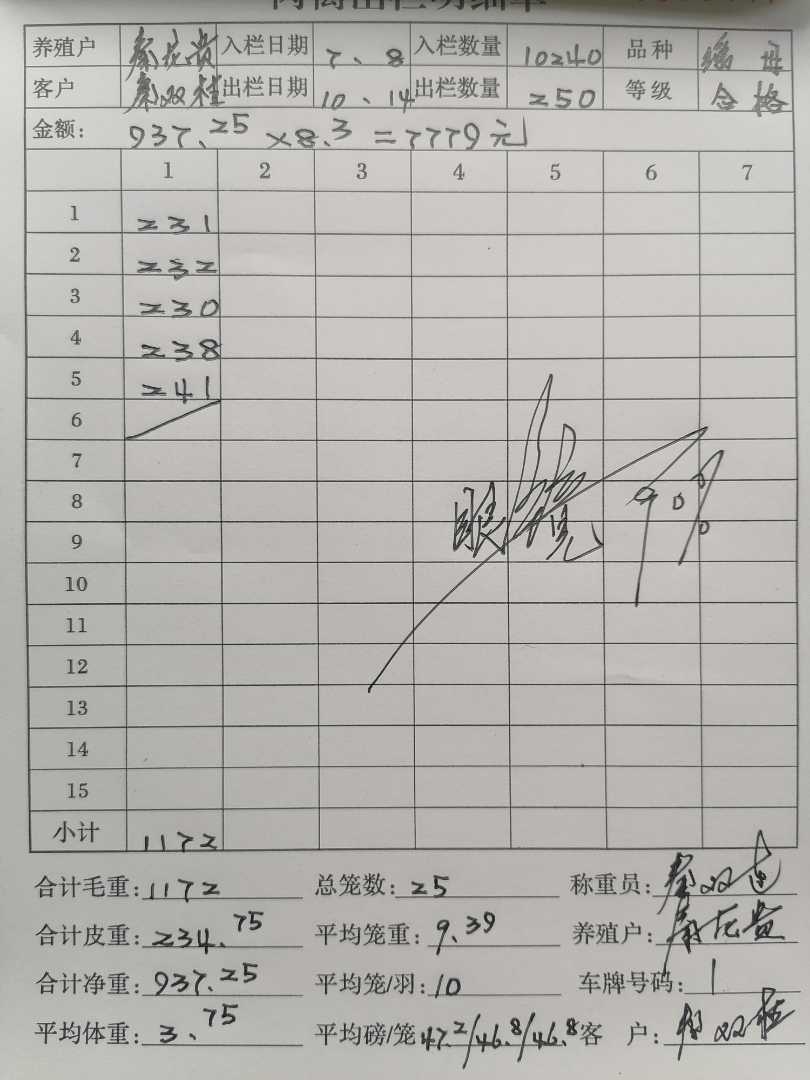 肉禽出栏明细单
养殖户 秦花贵 入栏日期 7、8 入栏数量 10240 品种 瑶母
客户 秦双桂 出栏日期 10、14 出栏数量 250 等级 合格
金额: 937.25 ×8.3 =7779元
1 2 3 4 5 6 7
1 231
2 232
3 230
4 238
5 241
6
7
8
9
10
11
12
13
14
15
小计 1172
合计毛重: 1172 总笼数: 25 称重员: 秦双
合计皮重: 234.75 平均笼重: 9.39 养殖户: 秦花贵
合计净重: 937.25 平均笼/羽: 10 车牌号码: 1
平均体重: 3.75 平均磅/笼 47.2/46.8/46.8 客 户: 秦双桂